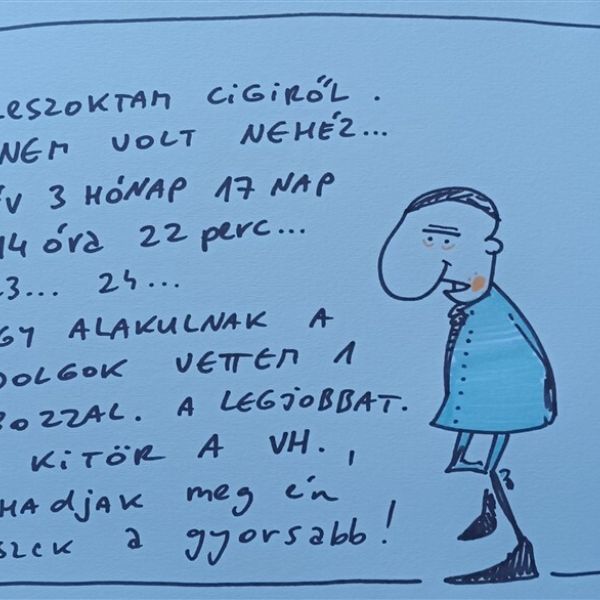 LESZOKTAM CIGIRŐL.
NEM VOLT NEHÉZ...
ÉV 3 HÓNAP 17 NAP
14 óra 22 perc...
23... 24...
ÍGY ALAKULNAK A
DOLGOK VETTEM 1
DOZZAL. A LEGJOBBAT.
KITÖR A VH.,
HADJAK meg én
LESZEK a gyorsabb!